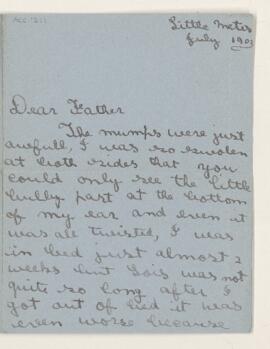 ACC 1211
Little Metis
July 1903
Dear Father
The mumps were just
awfull, I was so swolen
at both sides that you
could only see the little
bully part at the bottom
of my ear and even it
was all twisted, I was
in bed just almost 2
weeks but Lois was not
quite so long after I
got out of bed it was
even worse because